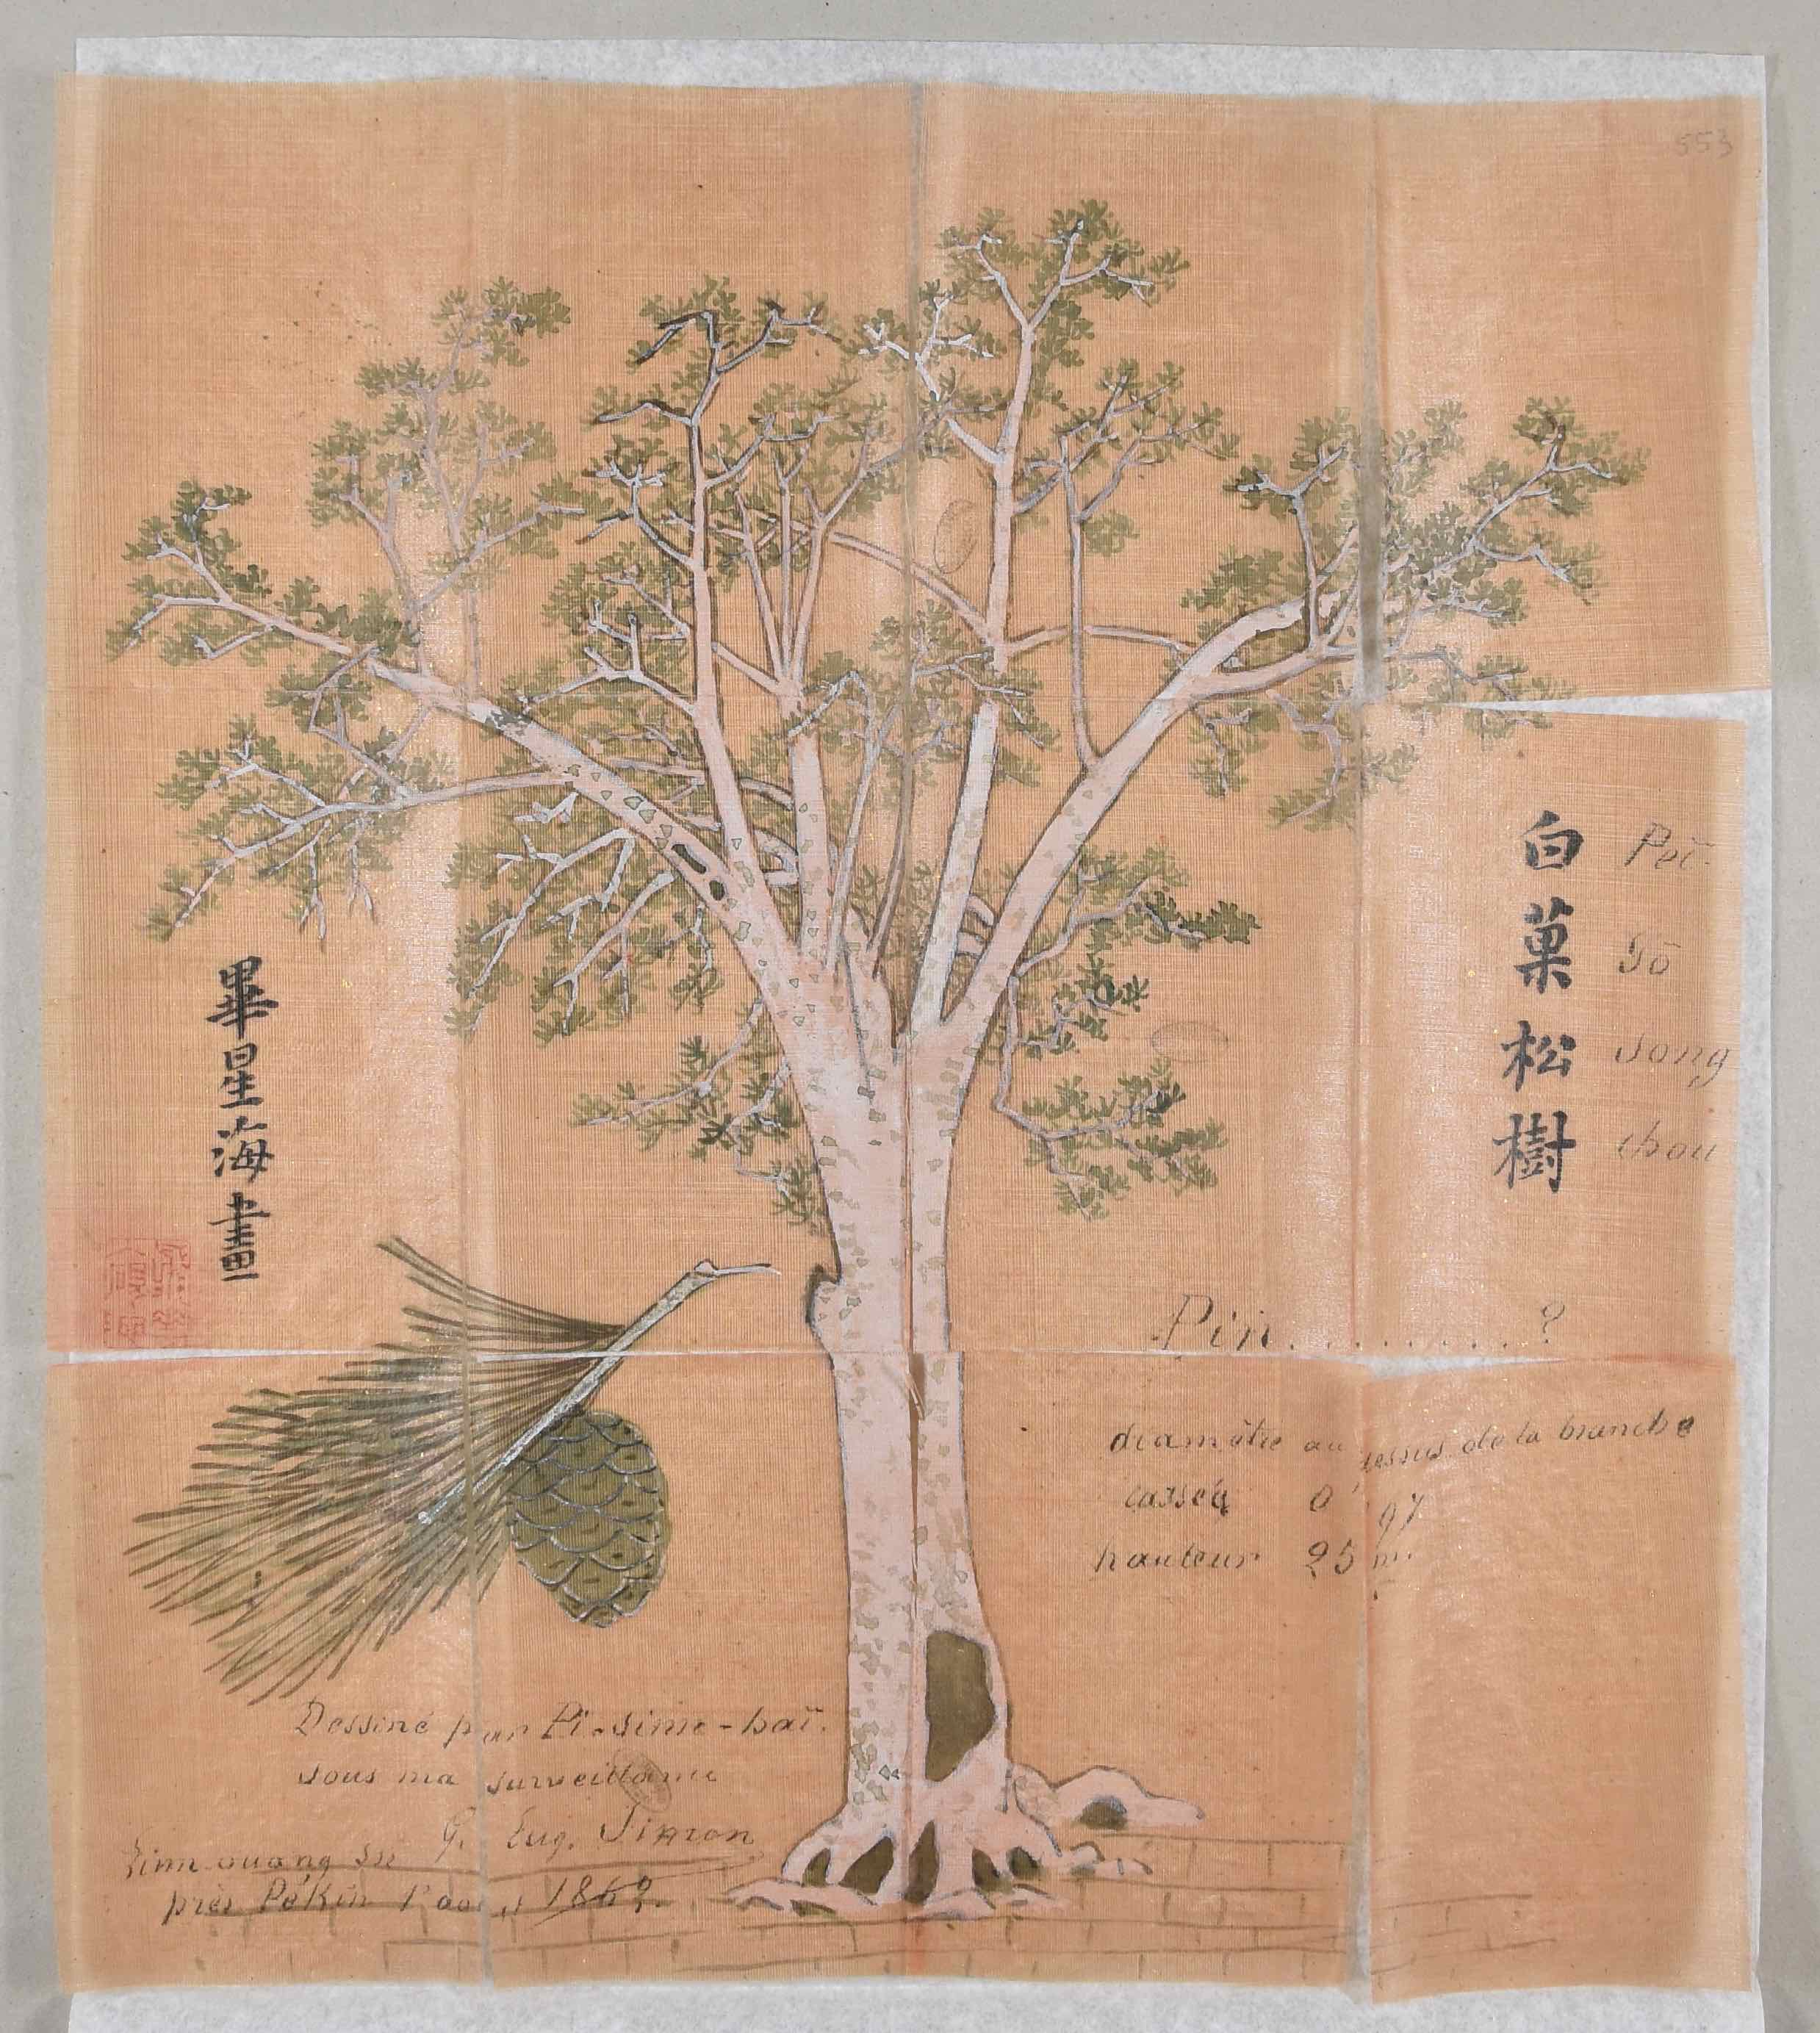 553
白菓松樹
Peï
Go
Song
chou
畢星海畫
Pin..........?
diamètre au dessus de la branche
cassée 0,97
hauteur 25 m.
Dessiné par Pi-sime-haï.
sous ma surveillance
G. Eug. Simon
près Pékin 1er août 1862.